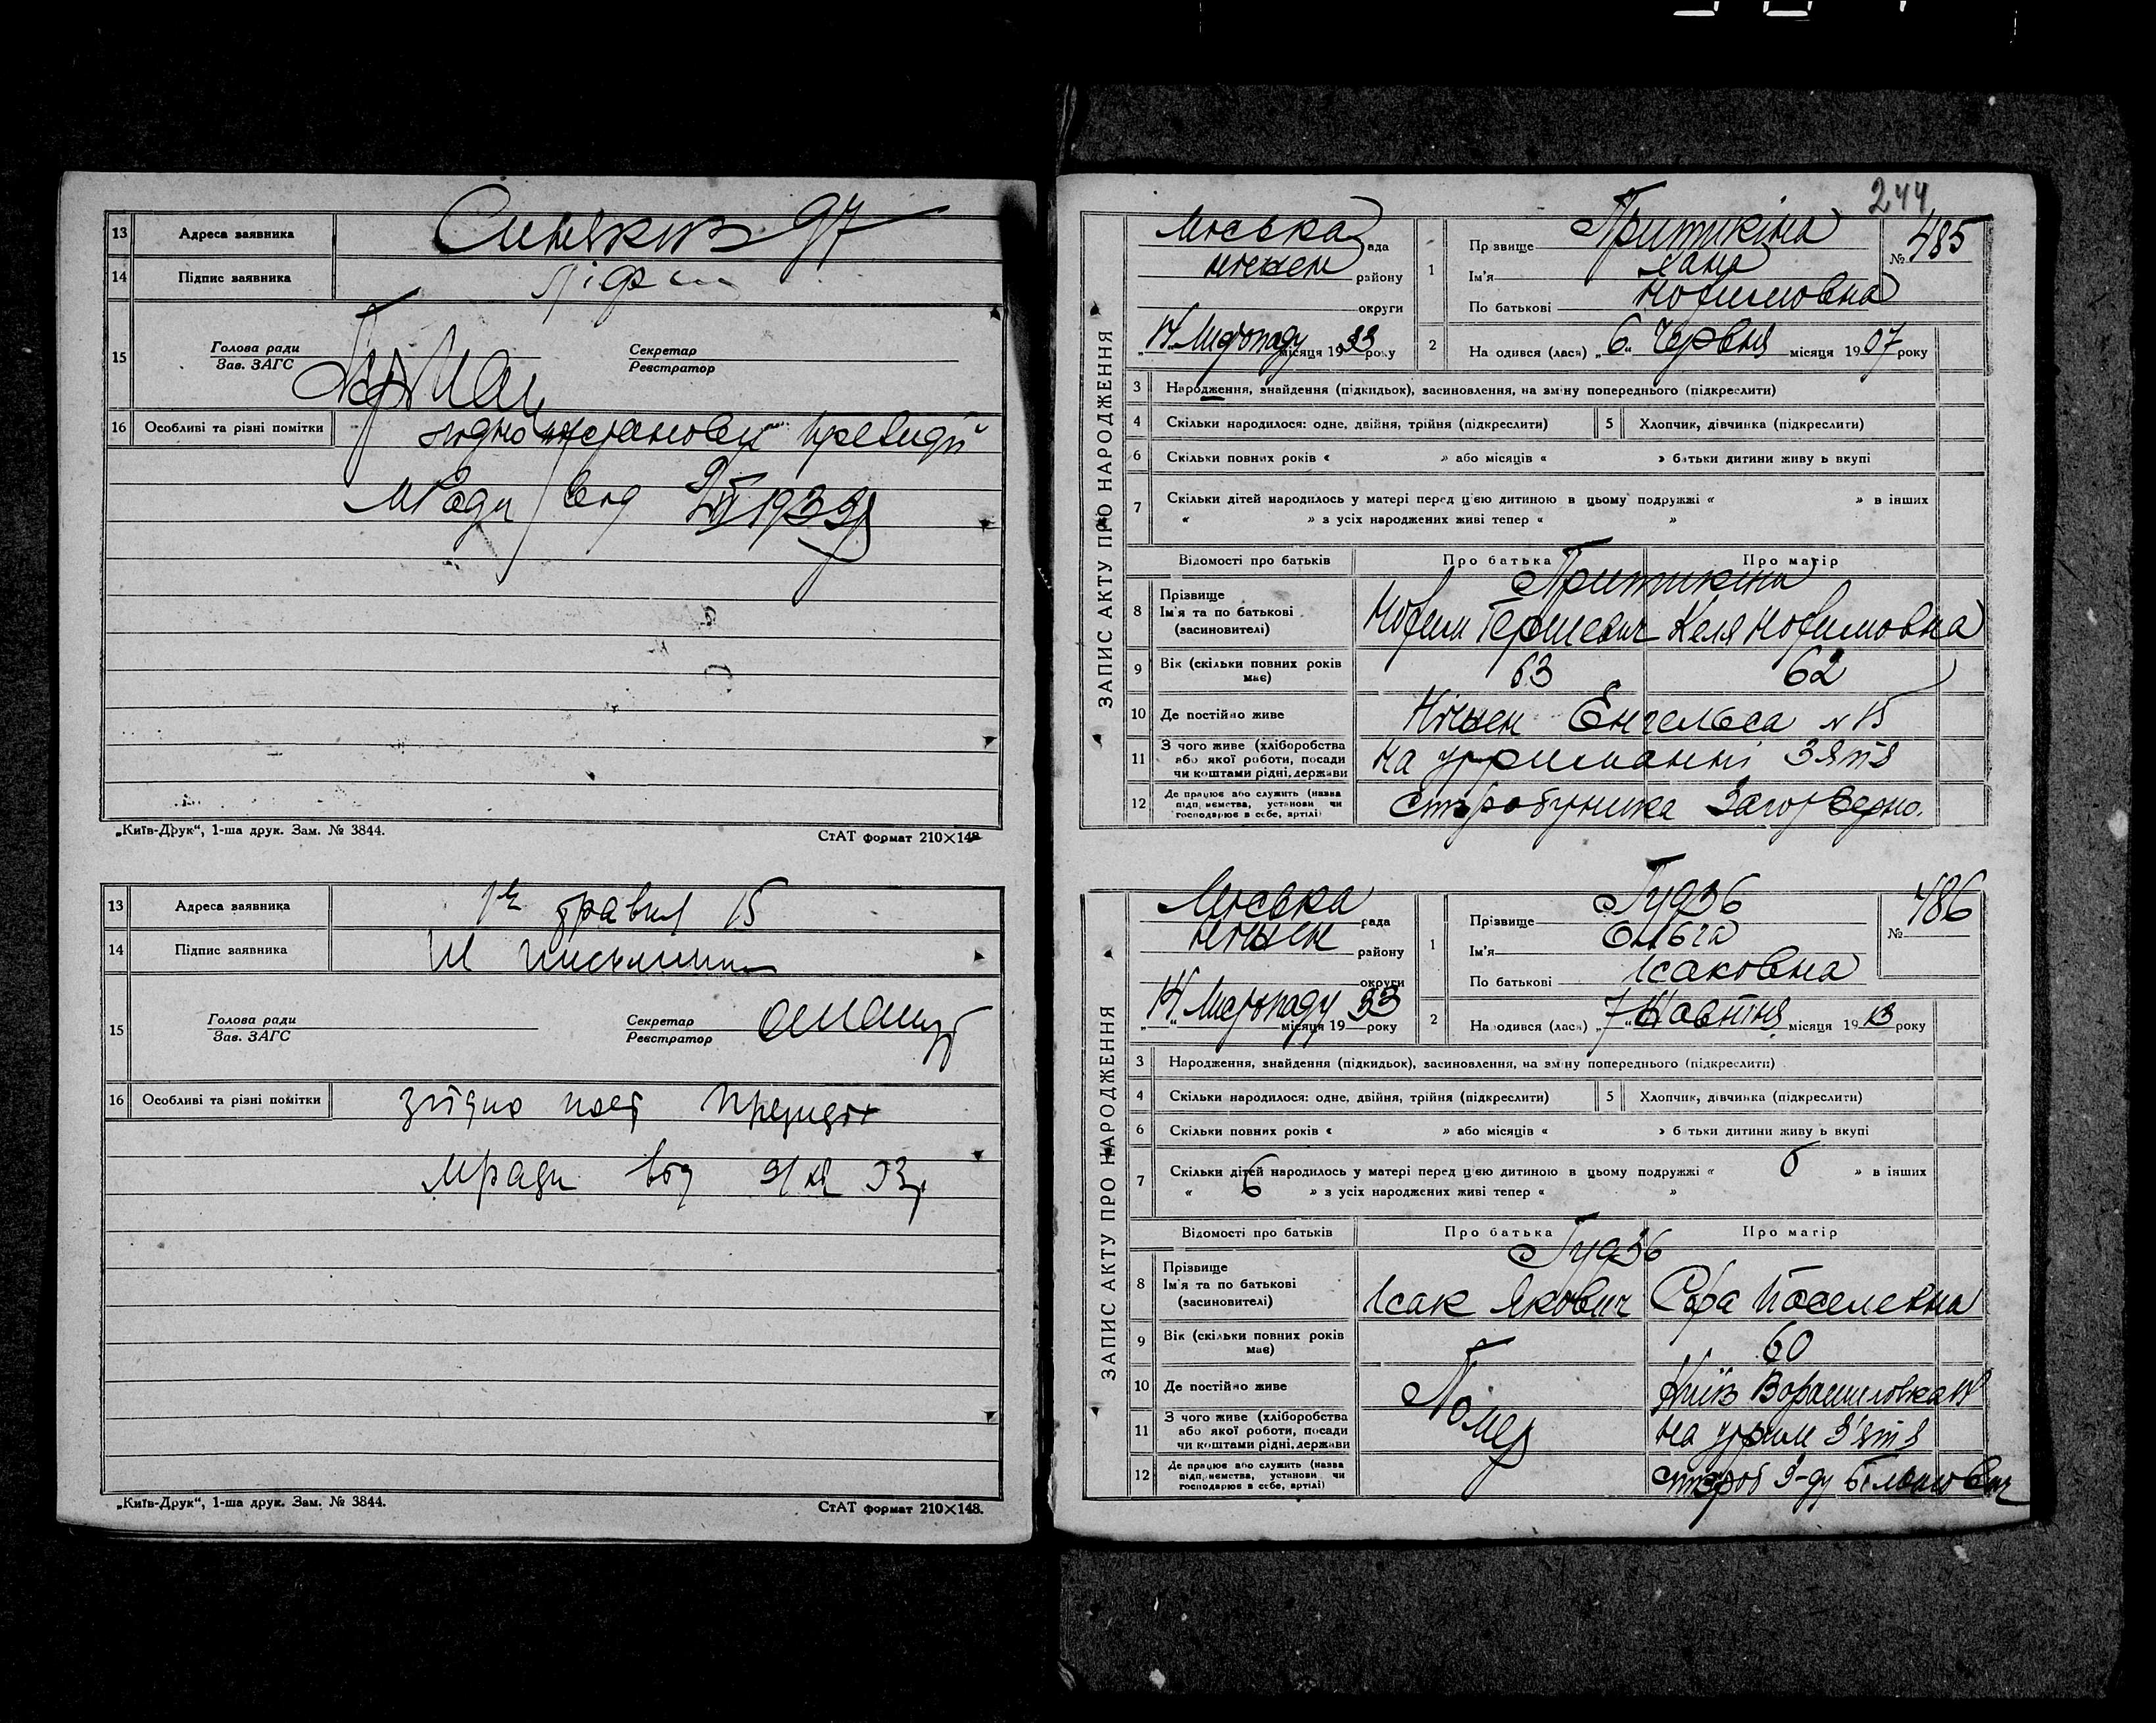 13 Адреса заявника Синяков 97
14 Підпис заявника Підпис
15 Голова ради
Зав. ЗАГС
Секретар
Реєстратор
16 Особливі та різні помітки
згідно постанови президії
мРади від
„Київ-Друк“, 1-ша друк. Зам. № 3844. СтАТ формат 210×148
13 Адреса заявника 1го травня 15
14 Підпис заявника
15 Голова ради
Зав. ЗАГС
Секретар
Реєстратор
16 Особливі та різні помітки згідно пост президії
мради від
„Київ-Друк“, 1-ша друк. Зам. № 3844. СтАТ формат 210×148.
244
ЗАПИС АКТУ ПРО НАРОДЖЕННЯ
Міська рада
Ніжен району
округи
14 Листопаду місяця 1933 року
1 Прізвище Притикіна № 485
Ім'я
По батькові Нохимовна
2 Народився (лася) „6“ Червня місяця 1907 року
3 Народження, знайдення (підкидьок), засиновлення, на зміну попереднього (підкреслити)
4 Скільки народилося: одне, двійня, трійня (підкреслити) 5 Хлопчик, дівчинка (підкреслити)
6 Скільки повних років « » або місяців « » батьки дитини живуть вкупі
7 Скільки дітей народилось у матері перед цією дитиною в цьому подружжі « » в інших
« » з усіх народжених живі тепер « »
Відомості про батьків Про батька Про матір
Притикіни
8 Прізвище
Ім'я та по батькові
(засиновителі)
Нохим Гершевич Келя Нохимовна
9 Вік (скільки повних років має) 63 62
10 Де постійно живе Ніжен Енгельса № 15
11 З чого живе (хліборобства
або якої роботи, посади
чи коштами рідні, держави
на утриманні зятя
12 Де працює або служить (назва
підприємства, установи чи
господарює в себе, артілі)
ЗАПИС АКТУ ПРО НАРОДЖЕННЯ
Міська рада
Ніжен району
округи
14 Листопаду місяця 1933 року
1 Прізвище Гудзь № 486
Ім'я Ольга
По батькові Ісаковна
2 Народився (лася) „7“ Жовтня місяця 1913 року
3 Народження, знайдення (підкидьок), засиновлення, на зміну попереднього (підкреслити)
4 Скільки народилося: одне, двійня, трійня (підкреслити) 5 Хлопчик, дівчинка (підкреслити)
6 Скільки повних років « » або місяців « » батьки дитини живуть вкупі
7 Скільки дітей народилось у матері перед цією дитиною в цьому подружжі « 6 » в інших
« 6 » з усіх народжених живі тепер « »
Відомості про батьків Про батька Про матір
Гудзь
8 Прізвище
Ім'я та по батькові
(засиновителі)
Ісак Якович Сора Йоселевна
9 Вік (скільки повних років має) 60
10 Де постійно живе Помер Київ
11 З чого живе (хліборобства
або якої роботи, посади
чи коштами рідні, держави
на утрим зятя
12 Де працює або служить (назва
підприємства, установи чи
господарює в себе, артілі)